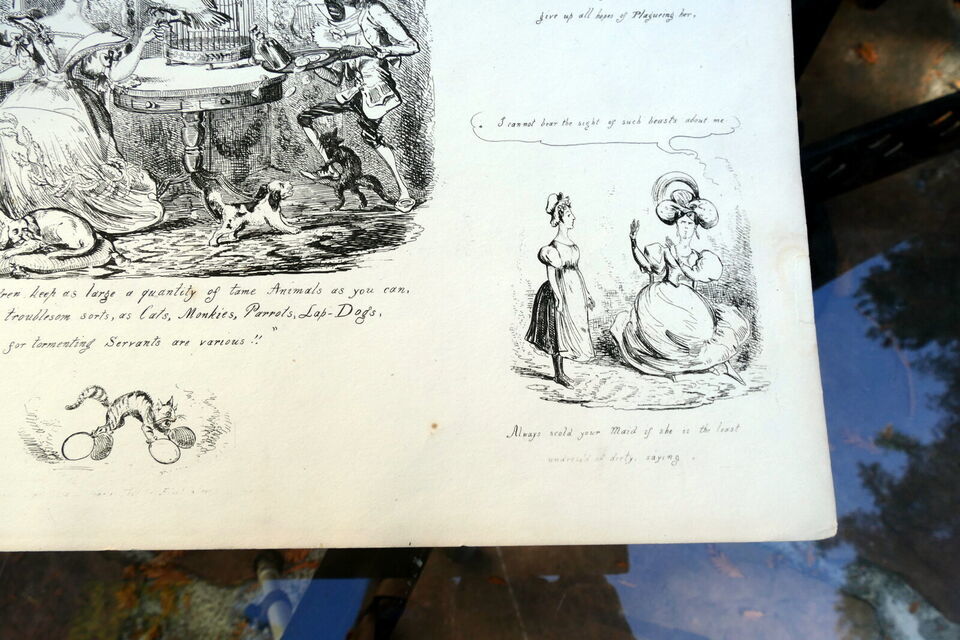 give up all hopes of Plagueing her.
I cannot bear the sight of such beasts about me
keep as large a quantity of tame Animals as you can,
troublesom sorts, as Cats, Monkies, Parrots, Lap-Dogs,
for tormenting Servants are various !! "
Always scold your Maid if she is the least
dirty, saying